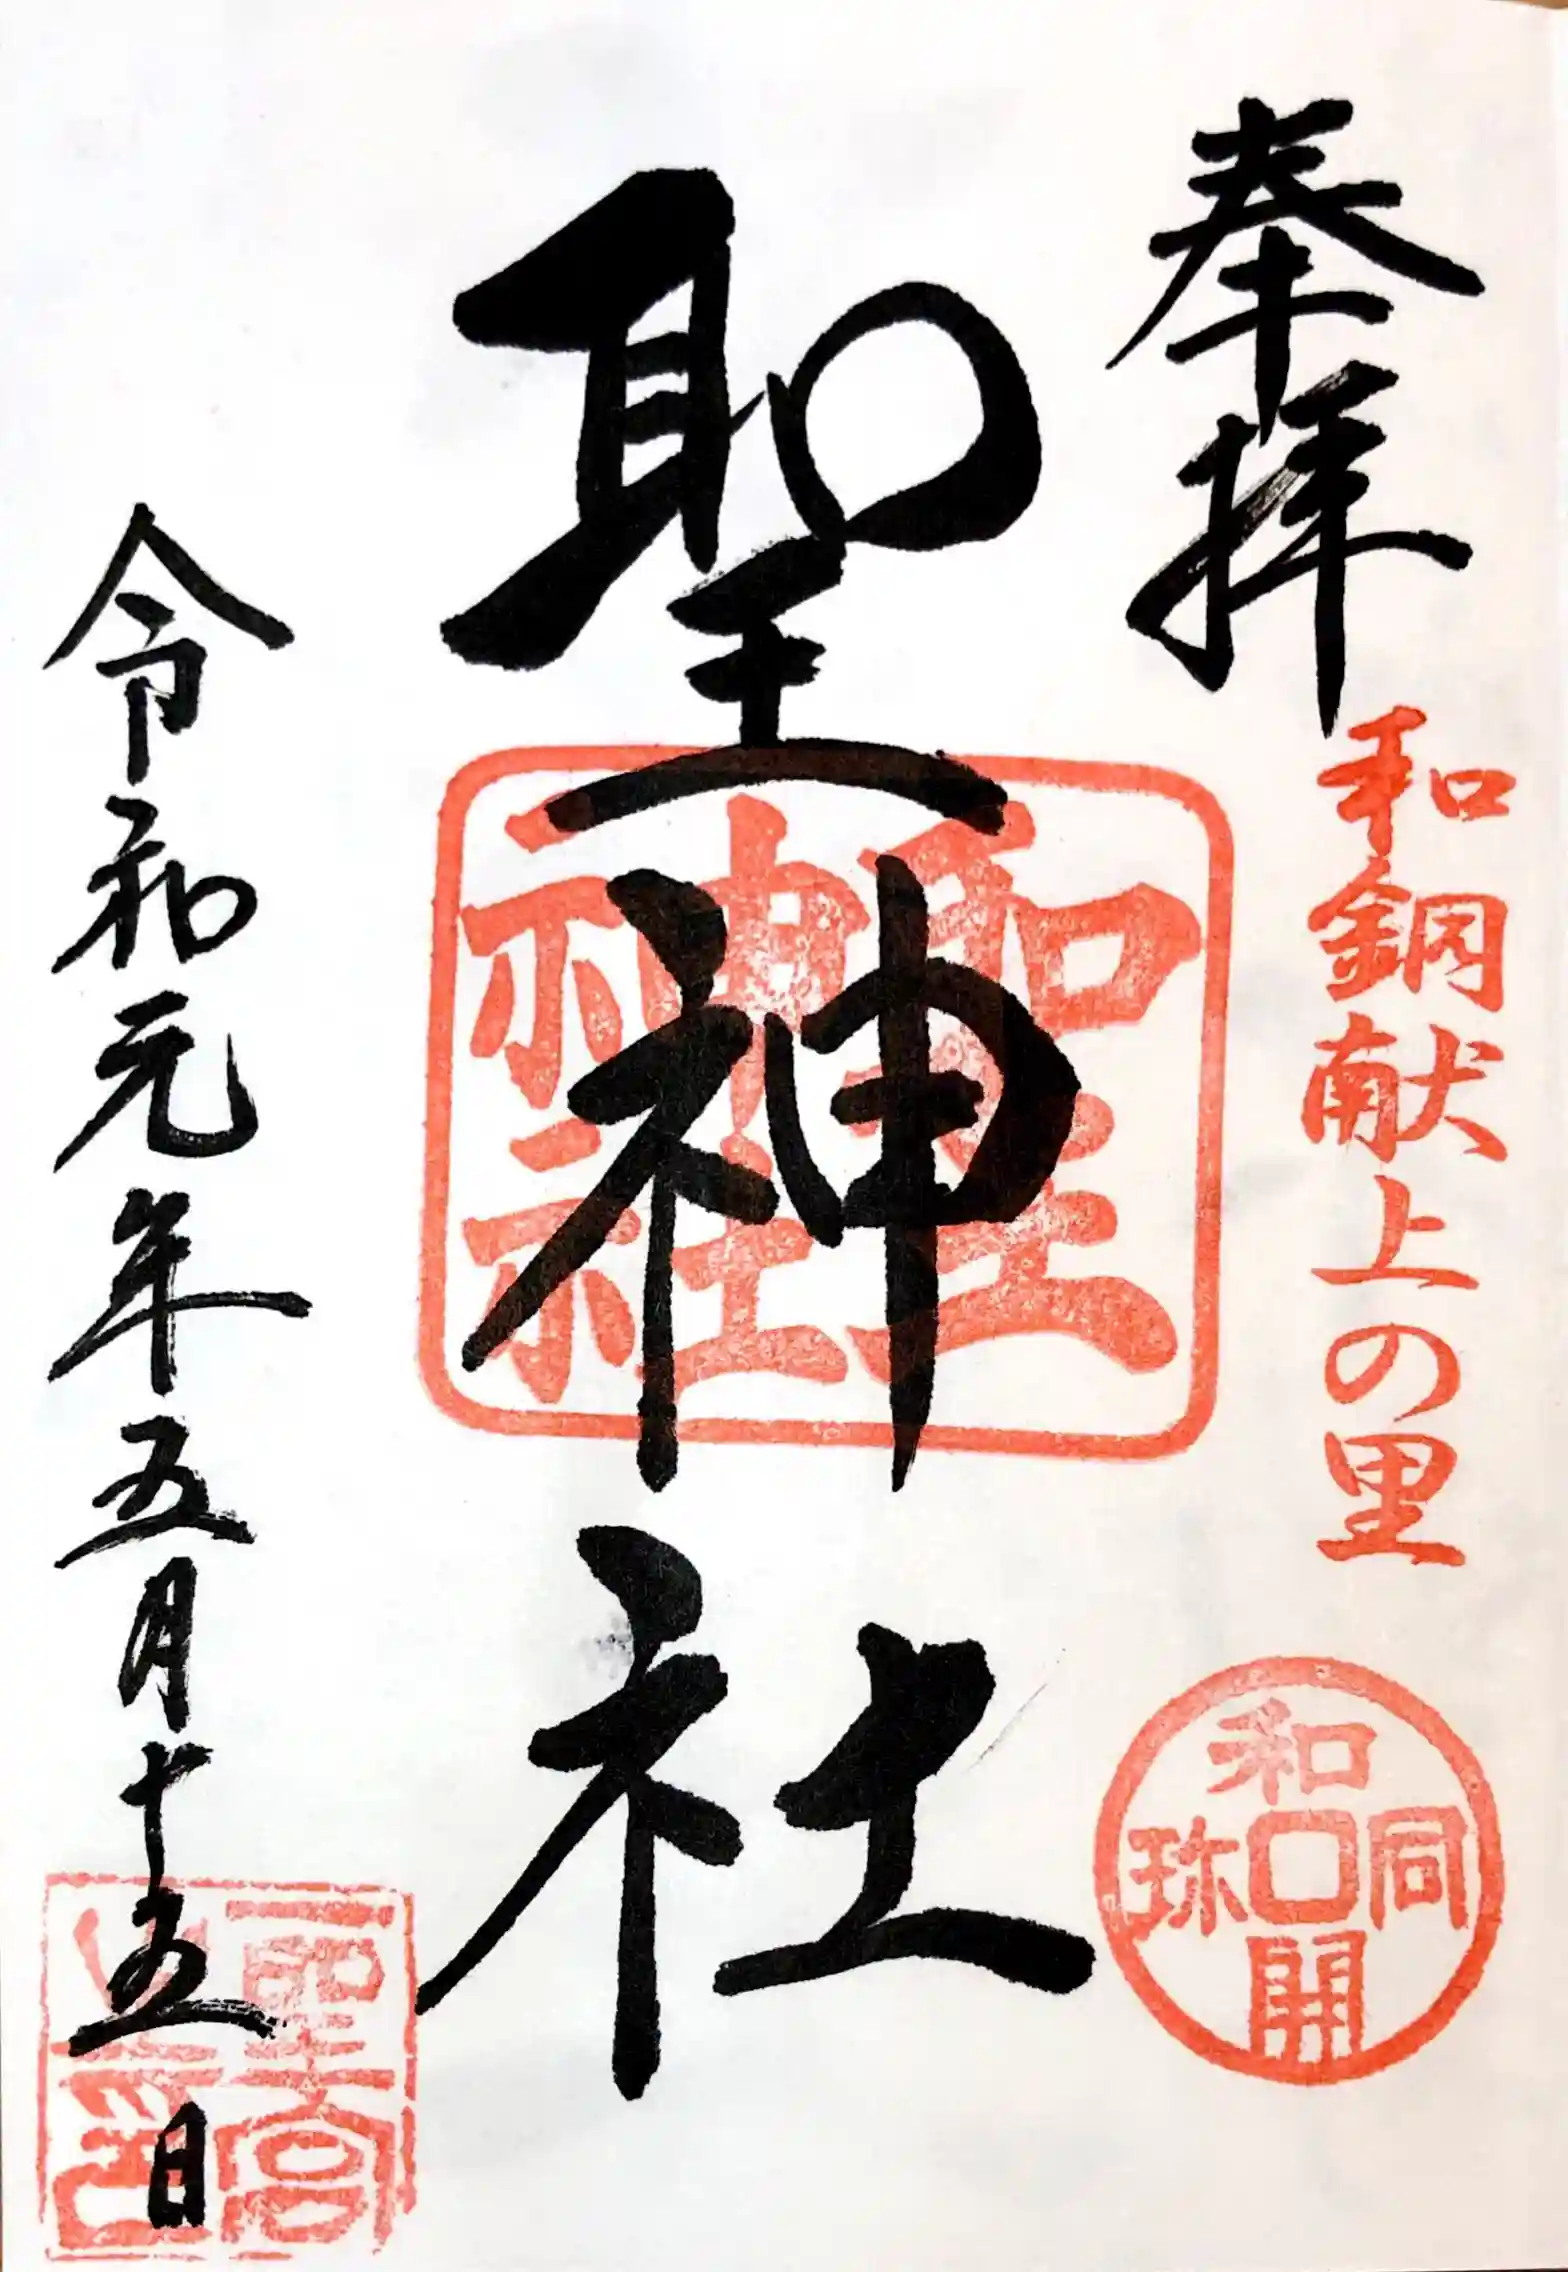 奉拝
和銅献上の里
和同開珎
聖神社
聖神社
令和元年五月十五日
聖宮之印